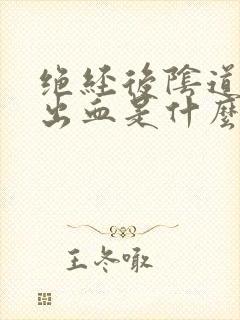 绝经後陰道
出血是什麼
王冬噉